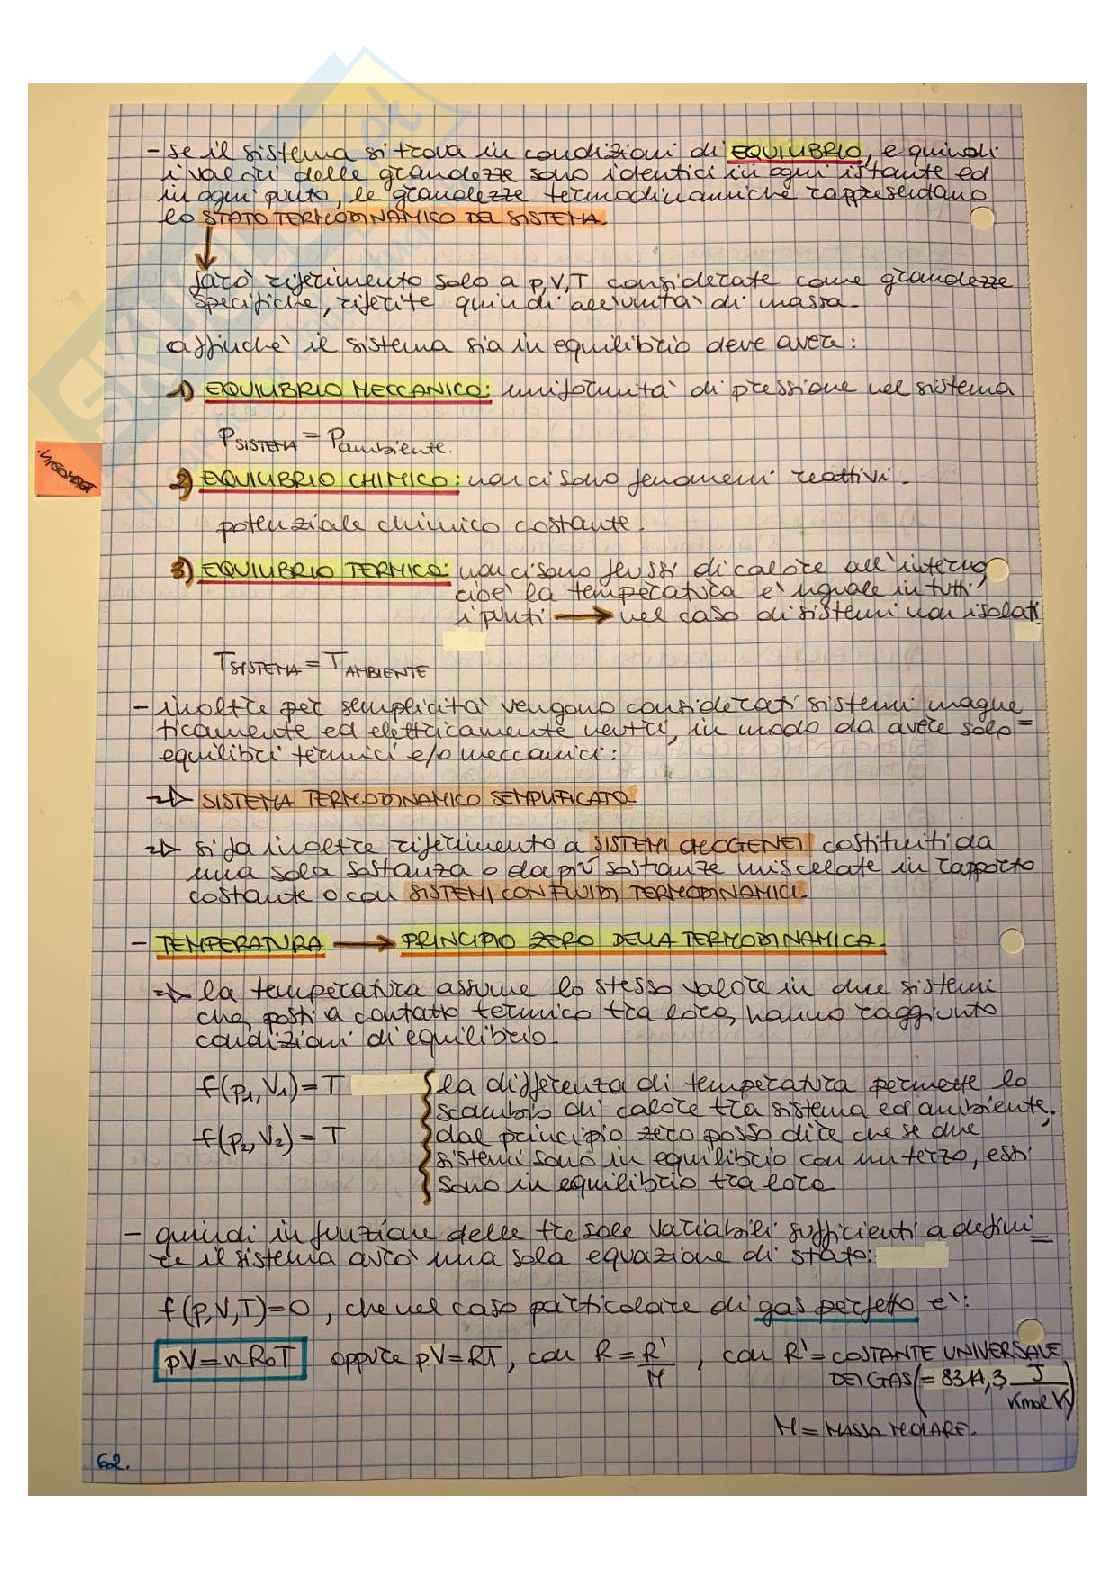 - se il sistema si trova in condizioni di EQUILIBRIO, e quindi
i valori delle grandezze sono identici in ogni istante ed
in ogni punto, le grandezze termodinamiche rappresentano
lo STATO TERMODINAMICO DEL SISTEMA.
farò riferimento solo a p,V,T considerate come grandezze
specifiche, riferite quindi all'unità di massa.
affinché il sistema sia in equilibrio deve avere:
1) EQUILIBRIO MECCANICO: uniformità di pressione nel sistema
PSISTEMA = Pambiente.
2) EQUILIBRIO CHIMICO: non ci sono fenomeni reattivi.
potenziale chimico costante.
3) EQUILIBRIO TERMICO: non ci sono flussi di calore all'interno
cioè la temperatura è uguale in tutti
i punti → nel caso di sistemi non isolati
TSISTEMA = TAMBIENTE
- inoltre per semplicità vengono considerati sistemi magne
ticamente ed elettricamente neutri, in modo da avere solo
equilibri termici e/o meccanici:
⇒ SISTEMA TERMODINAMICO SEMPLIFICATO.
⇒ si fa inoltre riferimento a SISTEMI OMOGENEI costituiti da
una sola sostanza o da più sostanze miscelate in rapporto
costante o con SISTEMI CON FLUIDI TERMODINAMICI.
- TEMPERATURA → PRINCIPIO ZERO DELLA TERMODINAMICA.
→ la temperatura assume lo stesso valore in due sistemi
che, posti a contatto termico tra loro, hanno raggiunto
condizioni di equilibrio.
f(p1,V1)=T { la differenza di temperatura permette lo
scambio di calore tra sistema ed ambiente,
f(p2,V2)=T dal principio zero posso dire che se due
sistemi sono in equilibrio con un terzo, essi
sono in equilibrio tra loro
- quindi in funzione delle tre sole variabili sufficienti a defini
re il sistema avrò una sola equazione di stato:
f(p,V,T)=0, che nel caso particolare di gas perfetto è:
pV=nR0T oppure pV=RT, con R=R'/M, con R'=COSTANTE UNIVERSALE
DEI GAS (=8314,3 J/KmolK)
M = MASSA MOLARE.
62.